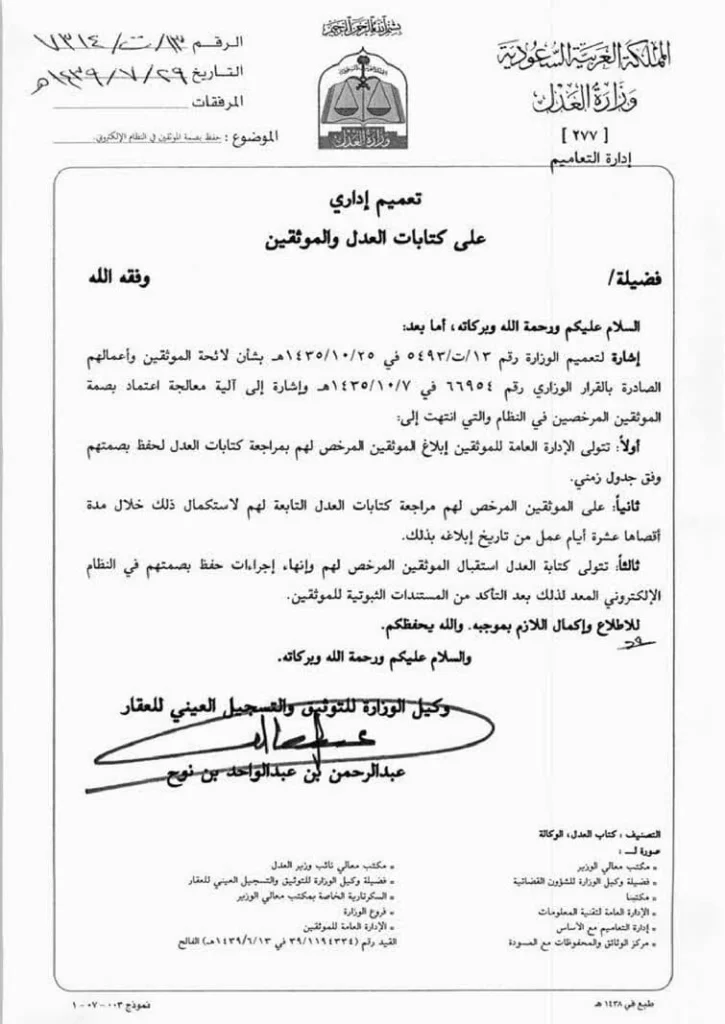 بسم الله الرحمن الرحيم
المملكة العربية السعودية
وزارة العدل
[ ٢٧٧ ]
إدارة التعاميم
وزارة العدل
الرقم ١٣/ت/٧٣١٤
التاريخ ١٤٣٩/٧/٢٩هـ
المرفقات
الموضوع : حفظ بصمة الموثقين في النظام الإلكتروني.
تعميم إداري
على كتابات العدل والموثقين
فضيلة/ وفقه الله
السلام عليكم ورحمة الله وبركاته، أما بعد:
إشارة لتعميم الوزارة رقم ١٣/ت/٥٤٩٣ في ١٤٣٥/١٠/٢٥هـ بشأن لائحة الموثقين وأعمالهم
الصادرة بالقرار الوزاري رقم ٦٦٩٥٤ في ١٤٣٥/١٠/٧هـ وإشارة إلى آلية معالجة اعتماد بصمة
الموثقين المرخصين في النظام والتي انتهت إلى:
أولاً: تتولى الإدارة العامة للموثقين إبلاغ الموثقين المرخص لهم بمراجعة كتابات العدل لحفظ بصمتهم
وفق جدول زمني.
ثانياً: على الموثقين المرخص لهم مراجعة كتابات العدل التابعة لهم لاستكمال ذلك خلال مدة
أقصاها عشرة أيام عمل من تاريخ إبلاغه بذلك.
ثالثاً: تتولى كتابة العدل استقبال الموثقين المرخص لهم وإنهاء إجراءات حفظ بصمتهم في النظام
الإلكتروني المعد لذلك بعد التأكد من المستندات الثبوتية للموثقين.
للاطلاع وإكمال اللازم بموجبه. والله يحفظكم.
والسلام عليكم ورحمة الله وبركاته.
وكيل الوزارة للتوثيق والتسجيل العيني للعقار
عبدالرحمن بن عبدالواحد بن نوح
التصنيف : كتاب العدل، الوكالة
صورة لـــ :
* مكتب معالي الوزير
* فضيلة وكيل الوزارة للشؤون القضائية
* مكتبنا
* الإدارة العامة لتقنية المعلومات
* إدارة التعاميم مع الأساس
* مركز الوثائق والمحفوظات مع المسودة
* مكتب معالي نائب وزير العدل
* فضيلة وكيل الوزارة للتوثيق والتسجيل العيني للعقار
* السكرتارية الخاصة بمكتب معالي الوزير
* فروع الوزارة
* الإدارة العامة للموثقين
القيد رقم (٣٩/١١٩٤٣٣٤ في ١٤٣٩/٦/١٣هـ) الفالح
طبع في ١٤٣٨ هـ
نموذج ٠٠٣ - ٠٧ - ١